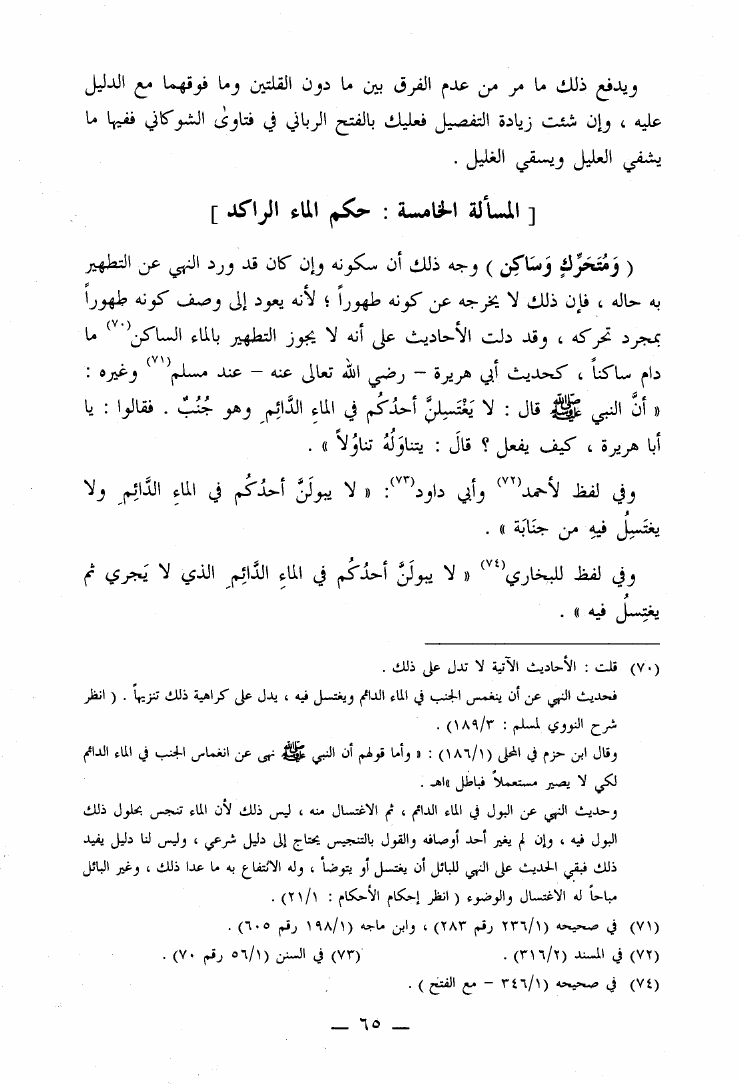 ويدفع ذلك ما مر من عدم الفرق بين ما دون القلتين وما فوقهما مع الدليل
عليه ، وإن شئت زيادة التفصيل فعليك بالفتح الرباني في فتاوىٰ الشوكاني ففيها ما
يشفي العليل ويسقي الغليل .
[ المسألة الخامسة : حكم الماء الراكد ]
( وَمُتَحَرِّكٍ وَسَاكِنٍ ) وجه ذلك أن سكونه وإن كان قد ورد النهي عن التطهير
به حاله ، فإن ذلك لا يخرجه عن كونه طهوراً ؛ لأنه يعود إلى وصف كونه طهوراً
بمجرد تحركه ، وقد دلت الأحاديث على أنه لا يجوز التطهير بالماء الساكن(٧٠) ما
دام ساكناً ، كحديث أبي هريرة – رضي الله تعالى عنه – عند مسلم(٧١) وغيره :
« أنَّ النبي ﷺ قال : لا يَغْتَسِلنَّ أحدُكُم في الماءِ الدَّائِمِ وهو جُنُبٌ . فقالوا : يا
أبا هريرة ، كيف يفعل ؟ قالَ : يتناوَلُهُ تناوُلاً » .
وفي لفظ لأحمد(٧٢) وأبي داود(٧٣): « لا يبولَنَّ أحدُكُم في الماءِ الدَّائِمِ ولا
يغتَسِلُ فيهِ من جنَابَة » .
وفي لفظ للبخاري(٧٤) « لا يبولَنَّ أحدُكُم في الماءِ الدَّائِمِ الذي لا يَجري ثم
يغتِسلُ فيه » .
(٧٠) قلت : الأحاديث الآتية لا تدل على ذلك .
فحديث النهي عن أن ينغمس الجنب في الماء الدائم ويغتسل فيه ، يدل على كراهية ذلك تنزيهاً . ( انظر
شرح النووي لمسلم : ١٨٩/٣) .
وقال ابن حزم في المحلى (١٨٦/١) : « وأما قولهم أن النبي ﷺ نهى عن انغماس الجنب في الماء الدائم
لكي لا يصير مستعملاً فباطل »اهـ .
وحديث النهي عن البول في الماء الدائم ، ثم الاغتسال منه ، ليس ذلك لأن الماء تنجس بحلول ذلك
البول فيه ، وإن لم يغير أحد أوصافه والقول بالتنجيس يحتاج إلى دليل شرعي ، وليس لنا دليل يفيد
ذلك فبقي الحديث على النهي للبائل أن يغتسل أو يتوضأ ، وله الانتفاع به ما عدا ذلك ، وغير البائل
مباحاً له الاغتسال والوضوء ( انظر إحكام الأحكام : ٢١/١) .
(٧١) في صحيحه (٢٣٦/١ رقم ٢٨٣) ، وابن ماجه (١٩٨/١ رقم ٦٠٥) .
(٧٢) في المسند (٣١٦/٢) . (٧٣) في السنن (٥٦/١ رقم ٧٠) .
(٧٤) في صحيحه (٣٤٦/١ – مع الفتح ) .
— ٦٥ —